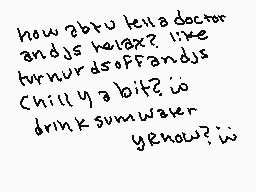 how abt u tell a doctor
and js relax? like
turn ur ds off and js
Chill 4 a bit? ü
drink sum water
y'know? ü